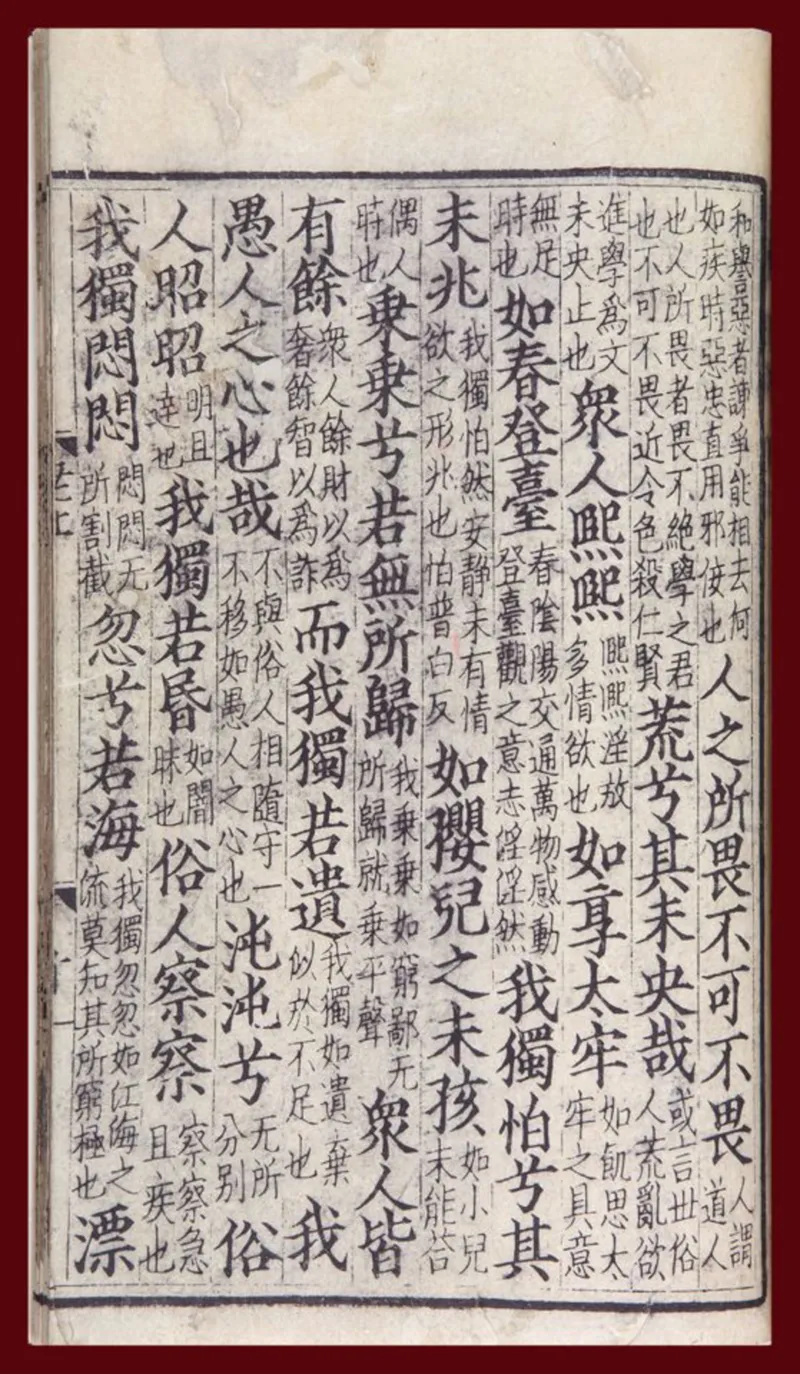 和譽惡者諫爭能相去何如疾時惡忠直用邪佞也人之所畏不可不畏人謂道人
也人所畏者畏不絕學之君也不可不畏近令色殺仁賢荒兮其未央哉或言丗俗人荒亂欲
進學爲文未央止也衆人熙熙熙熙淫放多情欲也如享太牢如飢思太牢之具意
無足時也如春登臺春陰陽交通萬物感動登臺觀之意志淫淫然我獨怕兮其
未兆我獨怕然安靜未有情欲之形兆也怕普白反如嬰兒之未孩如小兒未能荅
偶人時也乗乗兮若無所歸我乗乗如窮鄙无所歸就乗平聲衆人皆
有餘衆人餘財以爲奢餘智以爲詐而我獨若遺我獨如遺棄似於不足也我
愚人之心也哉不與俗人相隨守一不移如愚人之心也沌沌兮无所分别俗
人昭昭明且達也我獨若昬如闇昧也俗人察察察察急且疾也
我獨悶悶悶悶无所割截忽兮若海我獨忽忽如江海之流莫知其所窮極也漂